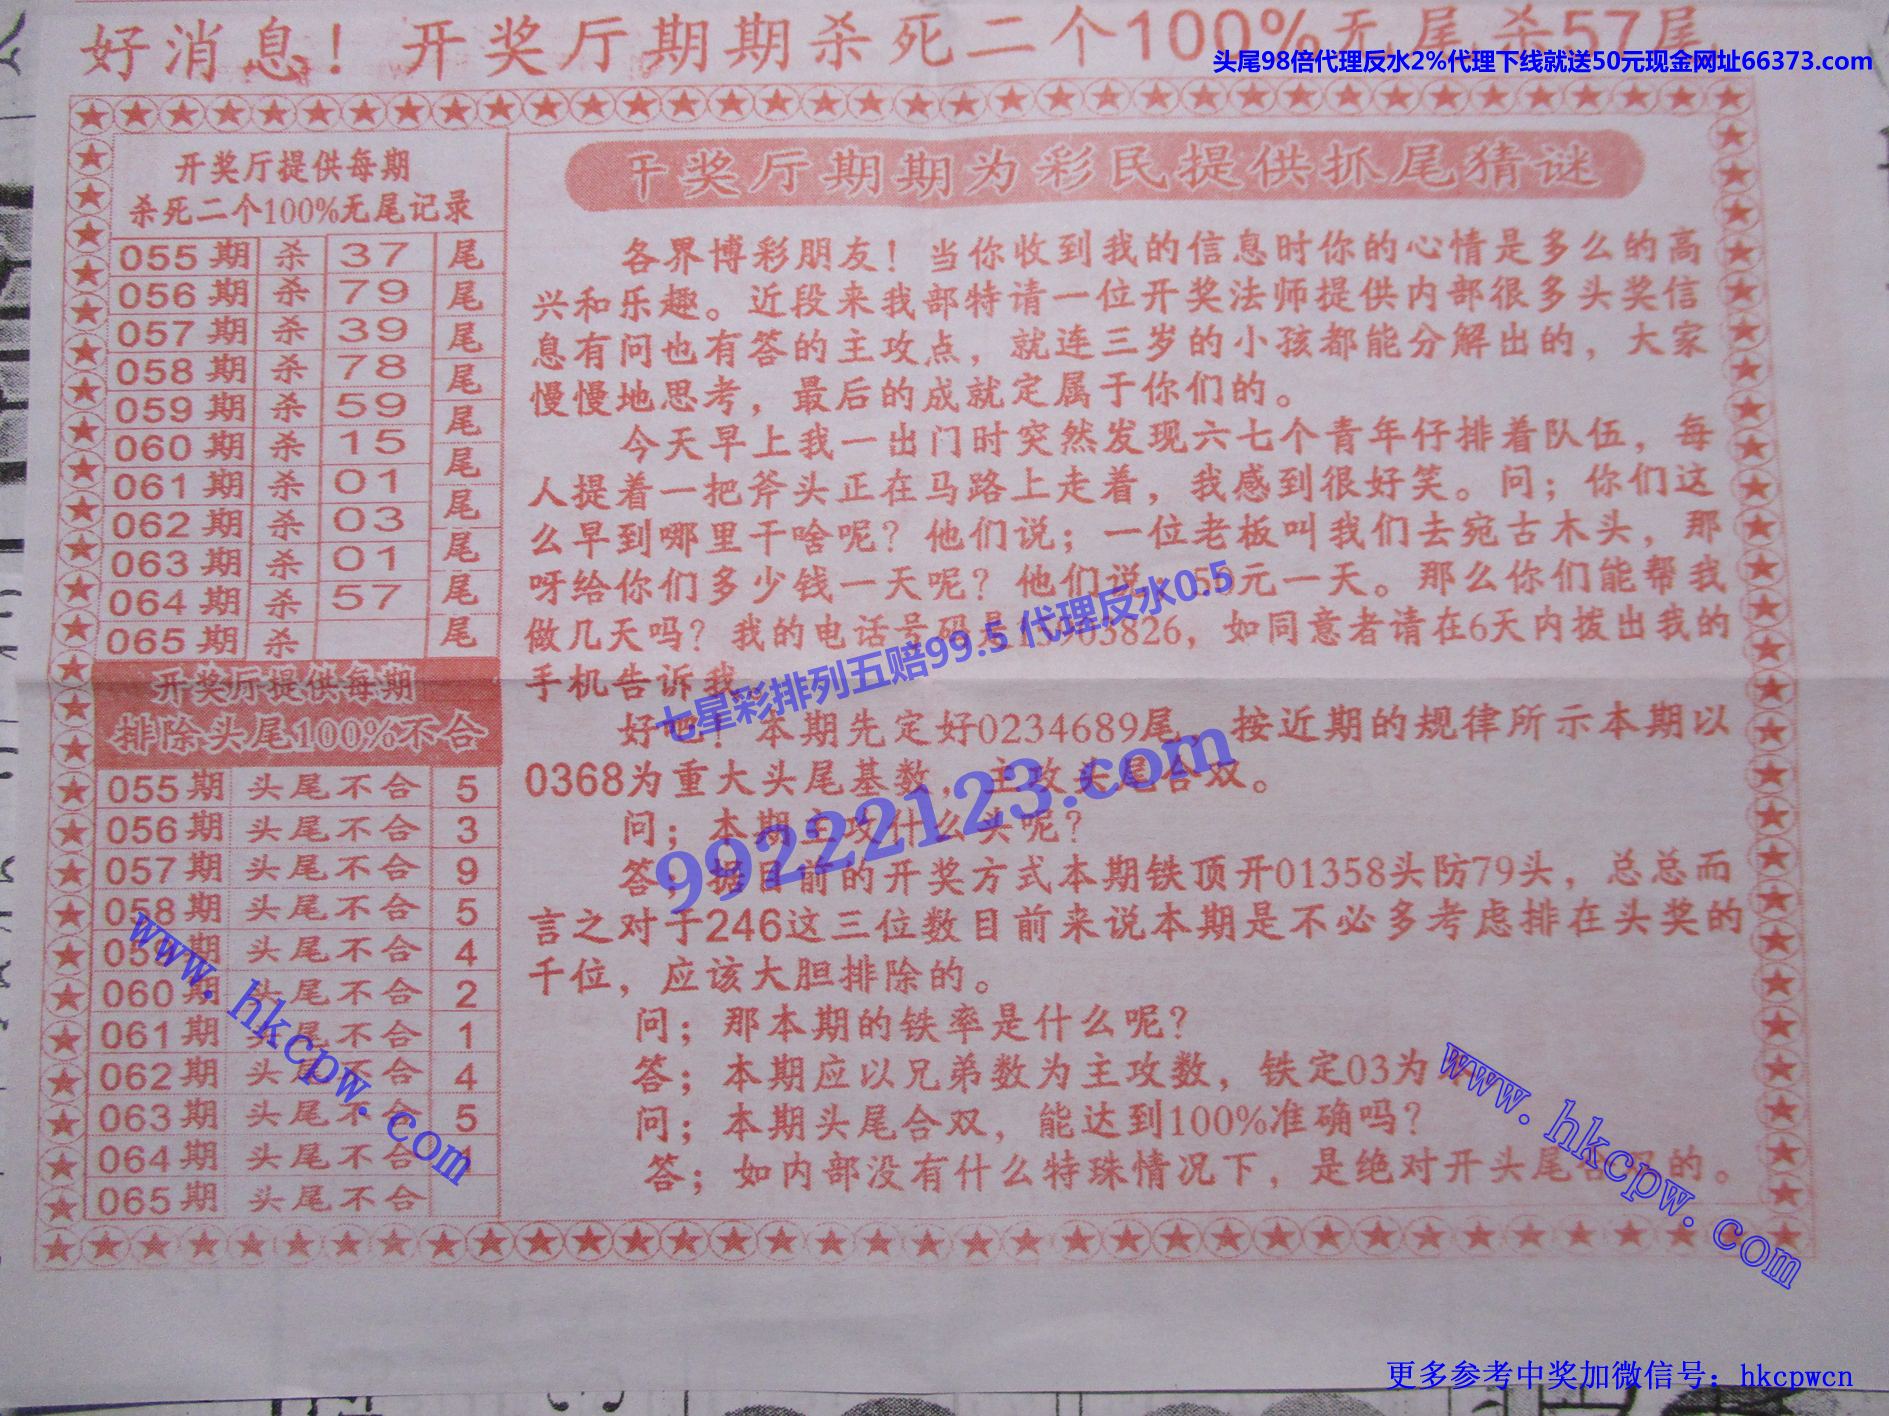 好消息！开奖厅期期杀死二个100%无尾.杀57尾
头尾98倍代理反水2%代理下线就送50元现金网址66373.com
开奖厅提供每期
杀死二个100%无尾记录
055期 杀 37 尾
056期 杀 79 尾
057期 杀 39 尾
058期 杀 78 尾
059期 杀 59 尾
060期 杀 15 尾
061期 杀 01 尾
062期 杀 03 尾
063期 杀 01 尾
064期 杀 57 尾
065期 杀 尾
开奖厅提供每期
排除头尾100%不合
055期 头尾不合 5
056期 头尾不合 3
057期 头尾不合 9
058期 头尾不合 5
059期 头尾不合 4
060期 头尾不合 2
061期 头尾不合 1
062期 头尾不合 4
063期 头尾不合 5
064期 头尾不合
065期 头尾不合
开奖厅期期为彩民提供抓尾猜谜
各界博彩朋友！当你收到我的信息时你的心情是多么的高
兴和乐趣。近段来我部特请一位开奖法师提供内部很多头奖信
息有问也有答的主攻点，就连三岁的小孩都能分解出的，大家
慢慢地思考，最后的成就定属于你们的。
今天早上我一出门时突然发现六七个青年仔排着队伍，每
人提着一把斧头正在马路上走着，我感到很好笑。问；你们这
么早到哪里干啥呢？他们说；一位老板叫我们去宛古木头，那
呀给你们多少钱一天呢？他们说；55元一天。那么你们能帮我
做几天吗？我的电话号码是13903826，如同意者请在6天内拨出我的
手机告诉我。
好吧！本期先定好0234689尾，按近期的规律所示本期以
0368为重大头尾基数，主攻头尾合双。
问；本期主攻什么头呢？
答；据目前的开奖方式本期铁顶开01358头防79头，总总而
言之对于246这三位数目前来说本期是不必多考虑排在头奖的
千位，应该大胆排除的。
问；那本期的铁率是什么呢？
答；本期应以兄弟数为主攻数，铁定03为
问；本期头尾合双，能达到100%准确吗？
答；如内部没有什么特珠情况下，是绝对开头尾合双的。
七星彩排列五赔99.5 代理反水0.5
99222123.com
www.hkcpw.com
www.hkcpw.com
更多参考中奖加微信号：hkcpwcn